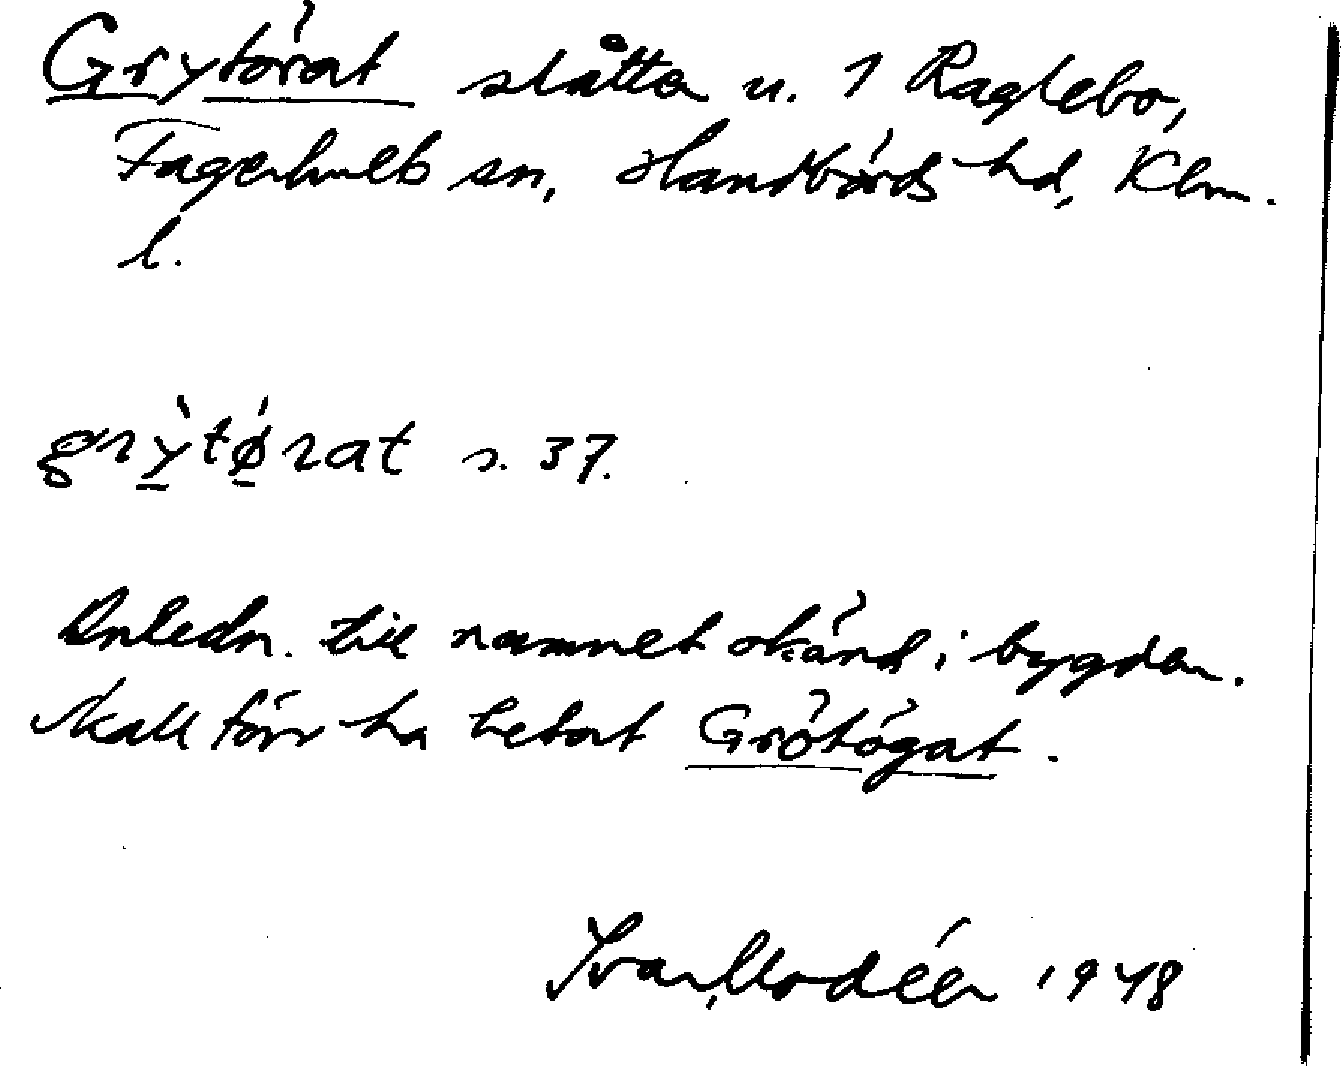 Grytörat slåtta u. 1 Raglebo,
Fagerhults sn, Handbörds hd, Klm.
l.
grỳtǿrat s. 37.
Anledn. till namnet okänd i bygden.
Skall förr ha hetat Grötögat.
Ivar Modéer 1948